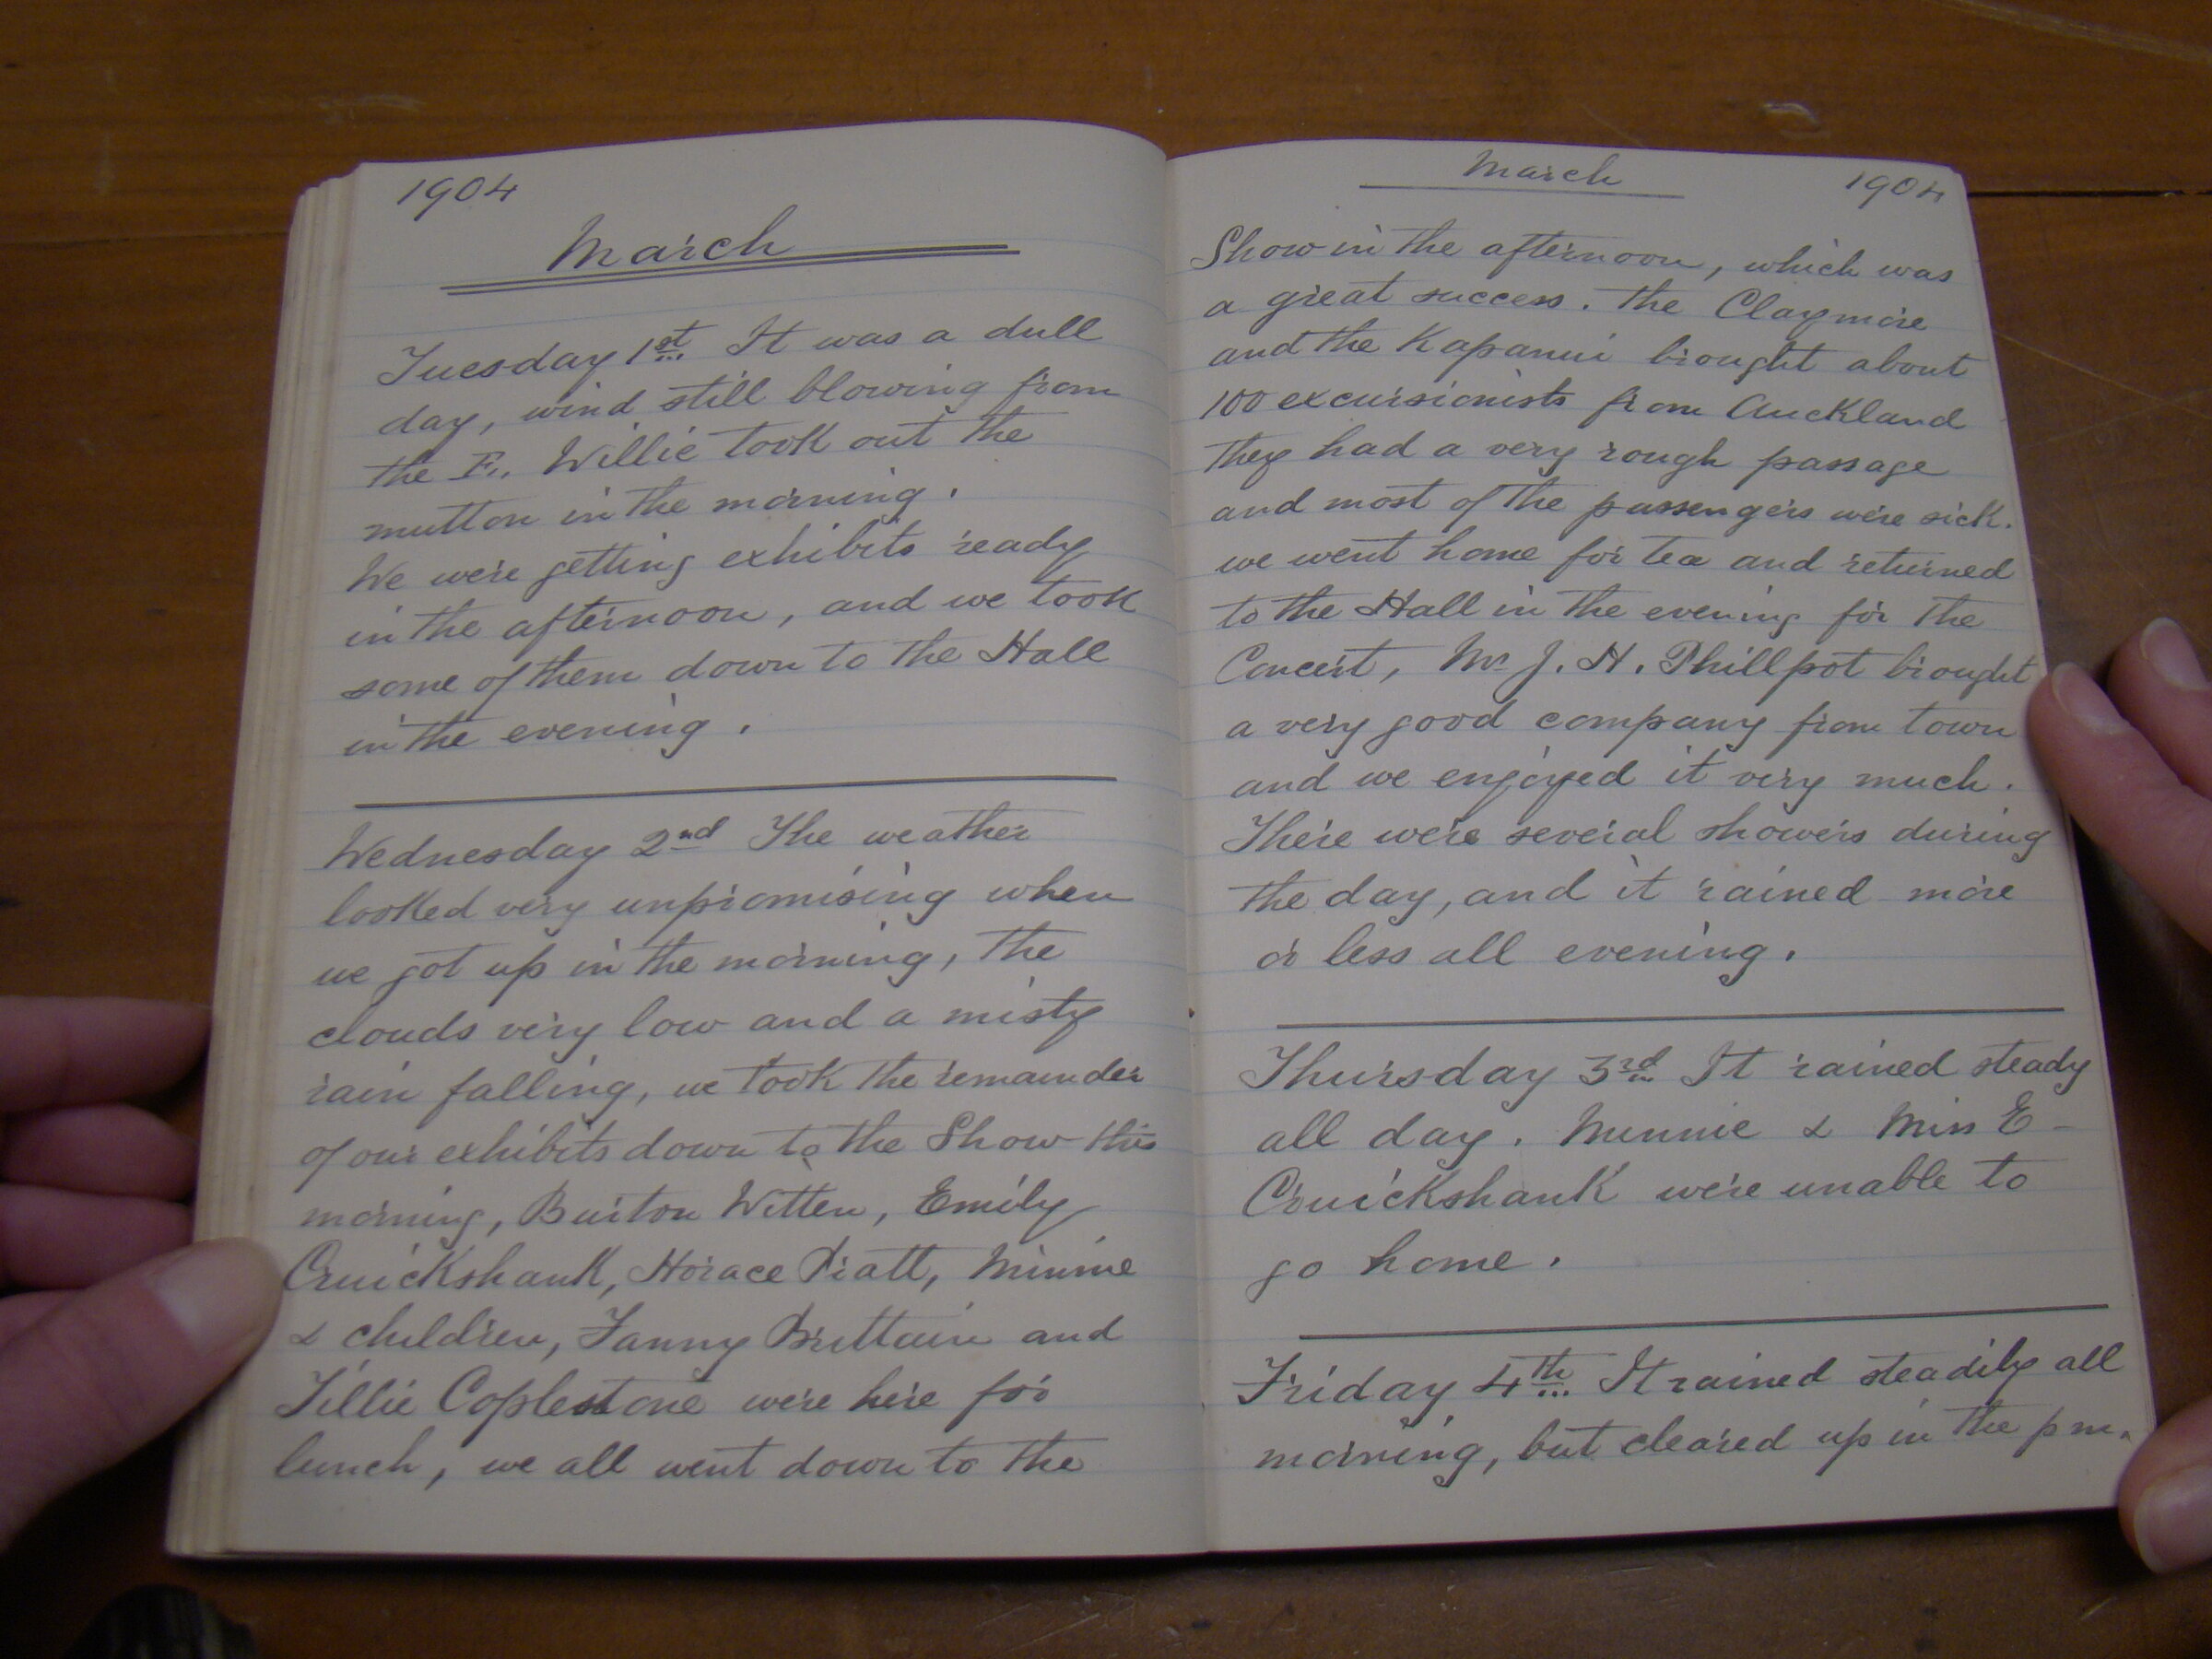 1904
March
Tuesday 1st It was a dull
day, wind still blowing from
the E,. Willie took out the
mutton in the morning.
We were getting exhibits ready
in the afternoon, and we took
some of them down to the Hall
in the evening.
Wednesday 2nd The weather
looked very unpromising when
we got up in the morning, the
clouds very low and a misty
rain falling, we took the remainder
of our exhibits down to the Show this
morning, Burton Witten, Emily
Cruickshank, Horace Pratt, Minnie
& children, Fanny Brittain and
Tillie Coplestone were here for
lunch, we all went down to the
March 1904
Show in the afternoon, which was
a great success. the Claymore
and the Kapanui brought about
100 excursionists from Auckland
they had a very rough passage
and most of the passengers were sick.
we went home for tea and returned
to the Hall in the evening for the
Concert, Mr J. H. Phillpot brought
a very good company from town
and we enjoyed it very much.
There were several showers during
the day, and it rained more
or less all evening.
Thursday 3rd It rained steady
all day. Minnie & Miss E-
Cruickshank were unable to
go home.
Friday 4th It rained steadily all
morning, but cleared up in the pm.